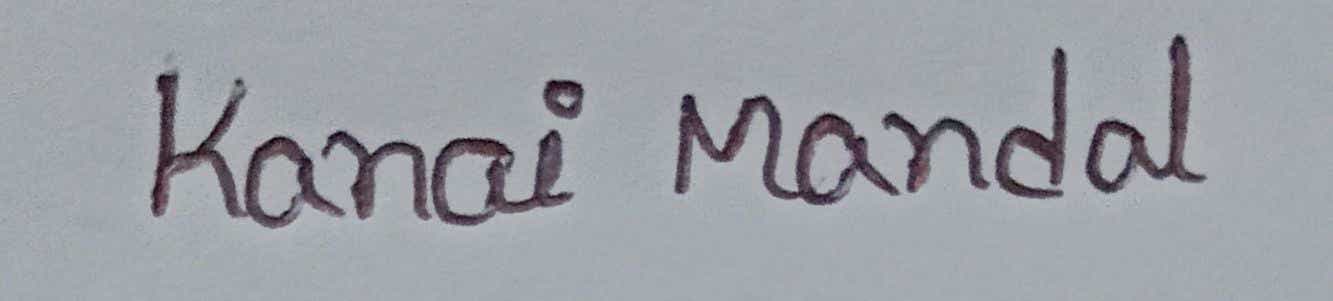 Kanai Mandal